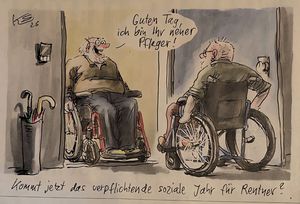 Guten Tag,
ich bin Ihr neuer
Pfleger!
Kommt jetzt das verpflichtende soziale Jahr für Rentner?